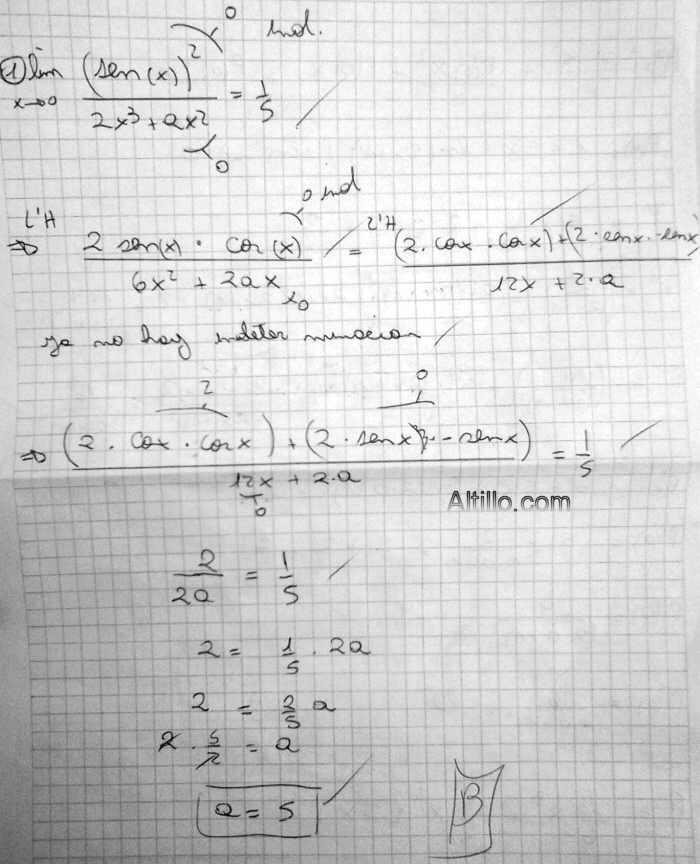 0 ind.
① lim (sen(x))² = 1/5
x→0 2x³ + ax²
0
L'H 0 ind L'H
⇒ 2 sen(x) · cos(x) = (2 · cosx · cosx) + (2 · senx · -senx)
6x² + 2ax 12x + 2·a
→0
ya no hay indeterminacion
2 0
⇒ (2 · cosx · cosx) + (2 · senx · -senx) = 1/5
12x + 2·a
0
Altillo.com
2/2a = 1/5
2 = 1/5 · 2a
2 = 2/5 a
2 · 5/2 = a
a = 5
B